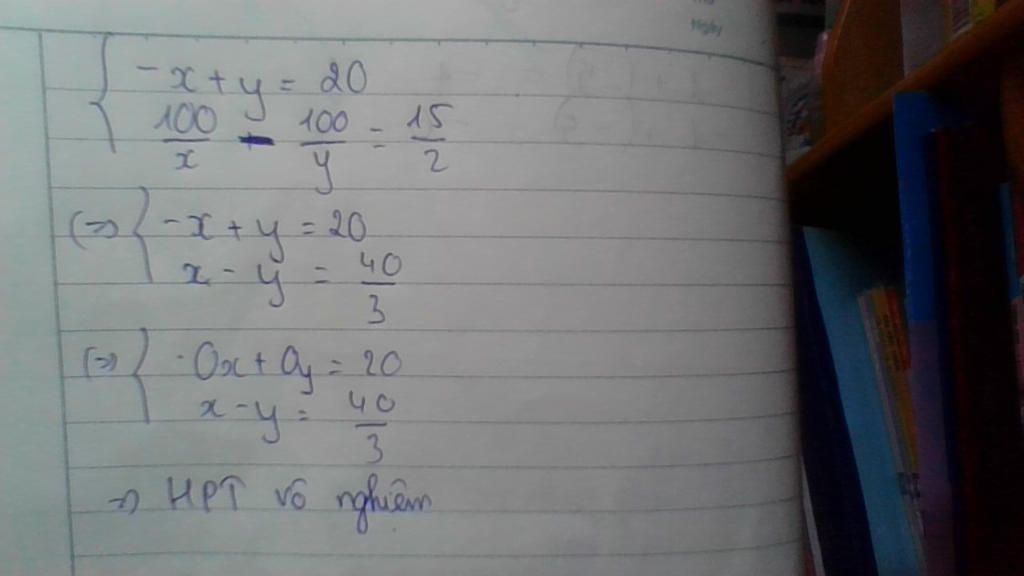 Ngày
{ -x + y = 20
100/x - 100/y = 15/2
(=>) { -x + y = 20
x - y = 40/3
(=>) { 0x + 0y = 20
x - y = 40/3
=> HPT vô nghiệm